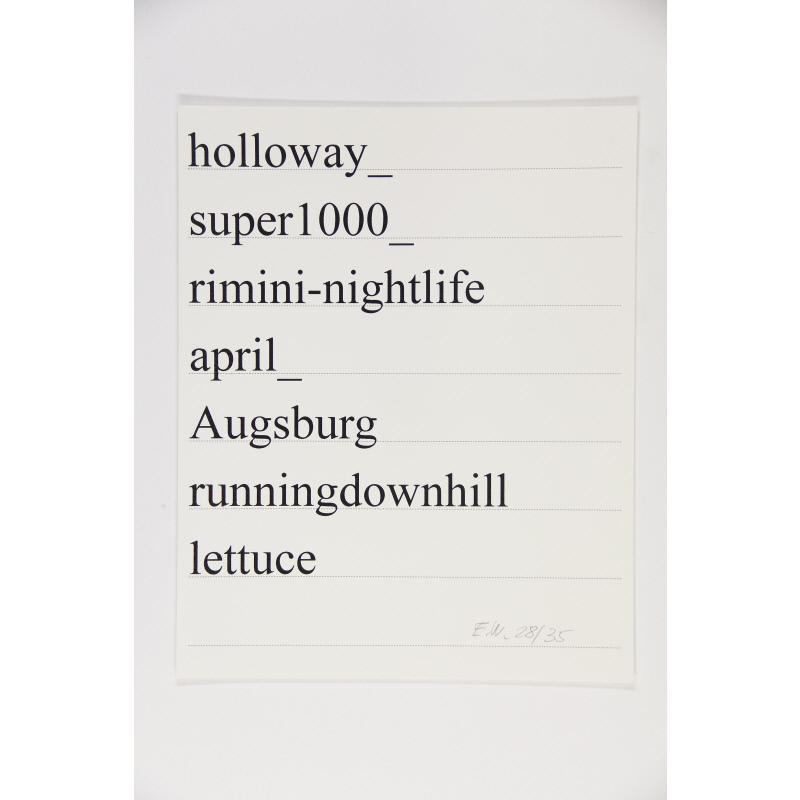 holloway_
super1000_
rimini-nightlife
april_
Augsburg
runningdownhill
lettuce
E.W. 28/35